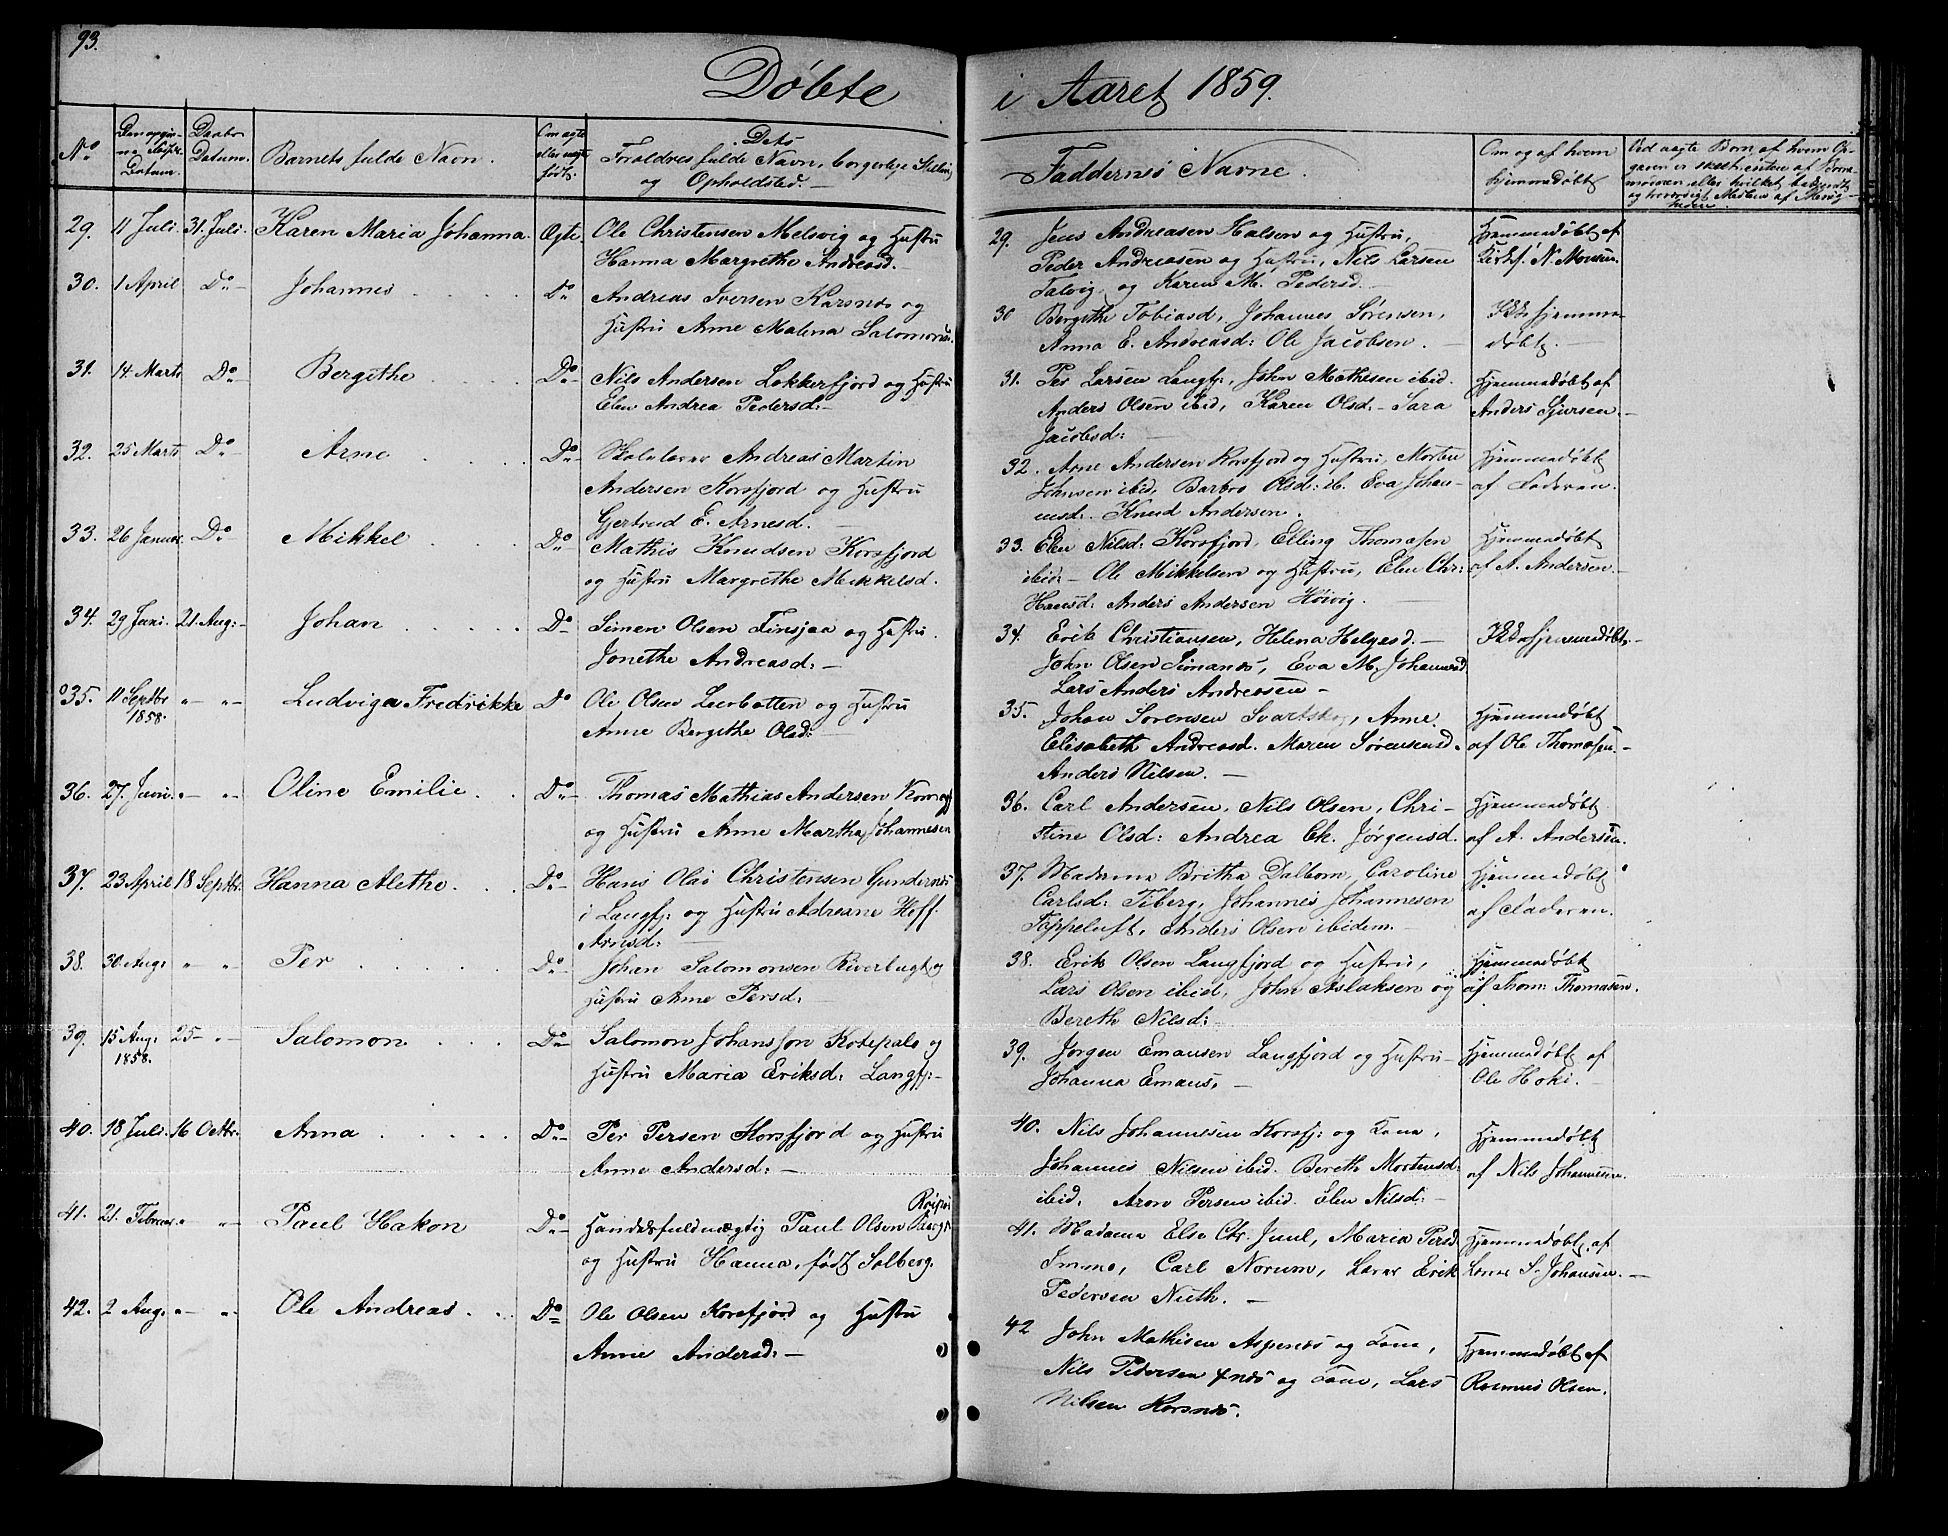 93.
Døbte i Aaret 1859.
No
Datum.
Daabs Datum.
Barnets fulde Navn.
Om ægte eller uægte født.
Dets Forældres fulde Navn, borgerlige Stilling og Opholdsted.
Faddernes Navne.
Om og af hvem hjemmedøbt
29. 11 Juli 31. Juli. Karen Maria Johanna. Ægte. Ole Christensen Melsvig og Hustru
Hanna Margrethe Andreasd.
29. Jens Andreasen Halsen og Hustru,
Peder Andreasen og Hustru, Nils Larsen
Talvig, og Karen M. Pedersd.
Hjemmedøbt af
Kirks. N. Monsen.
30. 1 April Do Johannes Do Andreas Iversen Karsnes og
Hustru Anne Malena Salomonsd.
30 Bergithe Tobiasd, Johannes Sørensen,
Anna E. Andreasd: Ole Jacobsen.
Ikke hjemme
døbt.
31. 14. Marts Do Bergithe Do Nils Andersen Lokkerfjord og Hustru
Elen Andrea Pedersd:
31. Per Larsen Langfj:, John Mathisen ibid.
Anders Olsen ibid, Karen Olsd. Sara
Jacobsd:
Hjemmedøbt af
Anders Sjursen.
32. 25 Marts Do Arne Do Skolelærer Andreas Martin
Andersen Korsfjord og Hustru
Gjertrud E. Arnesd.
32. Arne Andersen Korsfjord og Hustru, Morten
Johnsen ibid, Barbro Olsd: ib. Eva Johan-
nesd. Knud Andersen.
Hjemmedøbt
af Faderen.
33. 26 Januar. Do Mikkel Do Mathis Knudsen Korsfjord
og Hustru Margrethe Mikkelsd.
33. Elen Nilsd: Korsfjord, Elling Thomasen
ibid: Ole Mikkelsen og Hustru, Elen Chr:
Hansd: Anders Andersen Høivig.
Hjemmedøbt
af A. Andersen.
34. 29 Juni. 21. Aug: Johan Do Simen Olsen Finsjaa og Hustru.
Jonethe Andreasd:
34. Erik Christiansen, Helena Helgesd.
John Olsen Simanes, Eva M. Johannesd
Lars Anders Andreasen
Ikke hjemmedøbt.
35. 11 Septbr 1858. Ludviga Fredrikke Do Ole Olsen Leerbotten og Hustru
Anne Bergithe Olsd:
35. Johan Sørensen Svartskog, Anne
Elisabeth Andreasd. Maren Sørensensd.
Anders Nilsen.
Hjemmedøbt
af Ole Thomasen.
36. 27. Juni. Oline Emilie Do Thomas Mathias Andersen
og Hustru Anne Martha Johannesen
36. Carl Andersen, Nils Olsen, Chri-
stine Olsd: Andrea Ek. Jørgensd.
Hjemmedøbt
af A. Andersen.
37. 23 April 18 Septbr. Hanna Alethe. Do Hans Olai Christensen
i Langfj: og Hustru Adreane Hoff.
Arnesd:
37. Madame Britha Dalbom, Caroline
Carlsd: Tiberg, Johannes Johannesen
Toppeluft, Anders Olsen ibidem.
Hjemmedøbt
af Faderen.
38. 30. Aug: Per Do Johan Salomonsen Riverbugt og
Hustru Anne Persd:
38. Erik Olsen Langfjord og Hustru,
Lars Olsen ibid, John Aslaksen og
Bereth Nilsd:
Hjemmedøbt
af Thom: Thomasen.
39. 15 Aug: 1858. 25 Salomon Do Salomon Johansson Kotepalo og
Hustru Maria Eriksd: Langfj:
39. Jørgen Emausen Langfjord og Hustru
Johanna Emaus,
Hjemmedøbt af
Ole Hoki.
40. 18 Juli. 16 Octbr. Anna Do Per Persen Korsfjord og Hustru
Anne Andersd:
40. Nils Johannesen Korsfj: og Kone,
Johannes Nilsen ibid. Bereth Mortensd:
ibid. Aron Persen ibid. Elen Nilsd:
Hjemmedøbt
af Nils Johannesen.
41. 21. Februar. Paul Hakon Do Handelsfuldmægtig Paul Olsen
og Hustru Hanna, født Solberg.
41. Madame Else Chr. Juul, Maria Persd.
Imme, Carl Norum, Lærer Erik
Pedersen Nieth.
Hjemmedøbt af
Lærer S. Johansen.
42. 2 Aug: Ole Andreas Do Ole Olsen Korsfjord og Hustru
Anne Andersd:
42 John Mathisen Aspenes og Kone,
Nils Pedersen og Kone, Lars
Nilsen Korsnes.
Hjemmedøbt af
Rasmus Olsen.